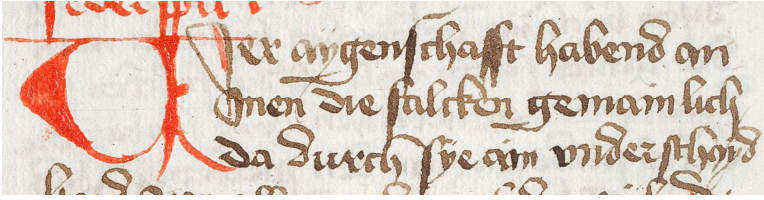 Uier aÿgenschafft habend an
Jnen die falcken gemainlich
da durch sye ain vnderschayd